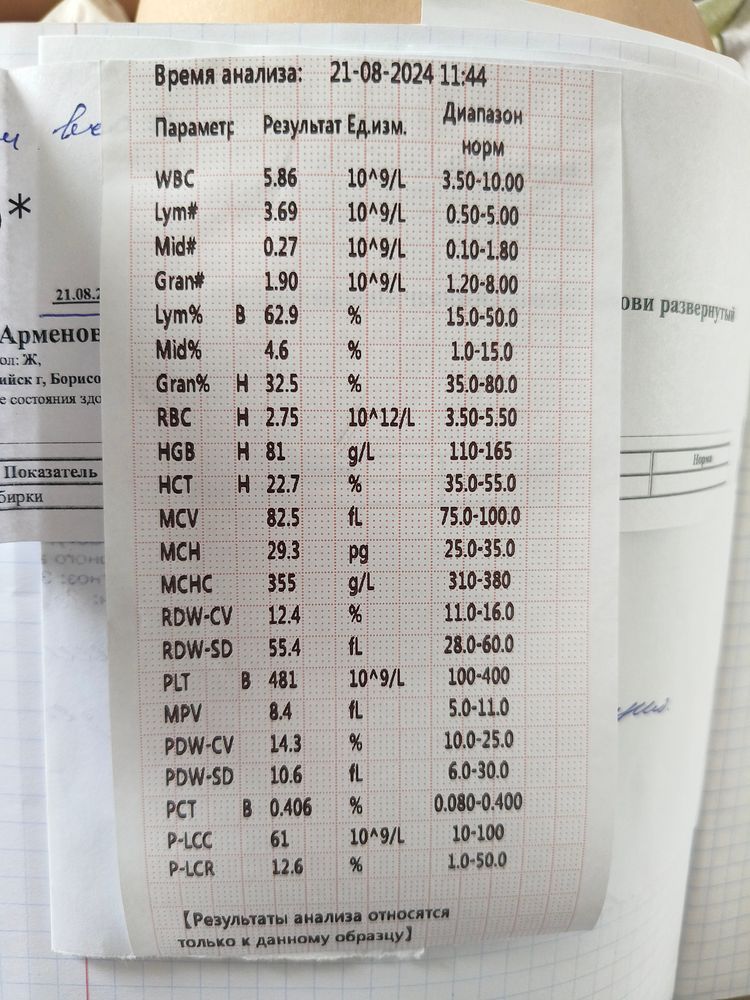 Время анализа: 21-08-2024 11:44
Параметр Результат Ед.изм. Диапазон норм
WBC 5.86 10^9/L 3.50-10.00
Lym# 3.69 10^9/L 0.50-5.00
Mid# 0.27 10^9/L 0.10-1.80
Gran# 1.90 10^9/L 1.20-8.00
Lym% В 62.9 % 15.0-50.0
Mid% 4.6 % 1.0-15.0
Gran% Н 32.5 % 35.0-80.0
RBC Н 2.75 10^12/L 3.50-5.50
HGB Н 81 g/L 110-165
HCT Н 22.7 % 35.0-55.0
MCV 82.5 fL 75.0-100.0
MCH 29.3 pg 25.0-35.0
MCHC 355 g/L 310-380
RDW-CV 12.4 % 11.0-16.0
RDW-SD 55.4 fL 28.0-60.0
PLT В 481 10^9/L 100-400
MPV 8.4 fL 5.0-11.0
PDW-CV 14.3 % 10.0-25.0
PDW-SD 10.6 fL 6.0-30.0
PCT В 0.406 % 0.080-0.400
P-LCC 61 10^9/L 10-100
P-LCR 12.6 % 1.0-50.0
【Результаты анализа относятся
только к данному образцу】
*
21.08.2
Арменов
ол: Ж,
ийск г, Борисо
е состояния здо
Показатель
бирки
ови развернутый
Норма